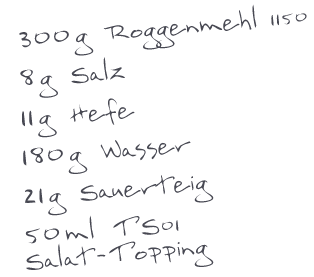 300g Roggenmehl 1150
8g Salz
11g Hefe
180g Wasser
21g Sauerteig
50ml TSOI
Salat-Topping